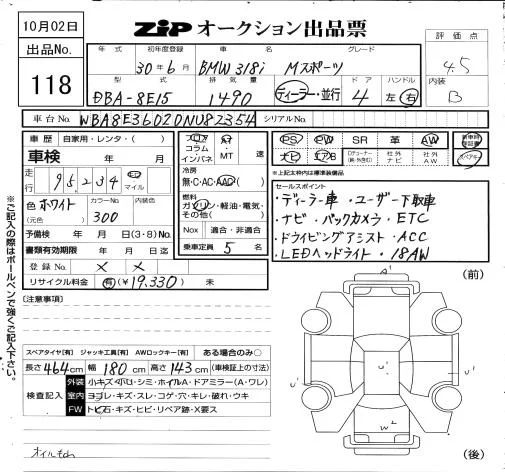 10月02日
ZIP オークション出品票
評価点
4.5
内装
B
出品No.
118
年式 初年度登録 車名 グレード
30年6月 BMW 318i Mスポーツ
型式 排気量 ドア ハンドル
DBA-8E15 1490 ディーラー・並行 4 左 右
車台No. WBA8E36020NU82354 シリアルNo.
車歴 自家用・レンタ( )
車検 年 月
走行 95234 km マイル
色 ホワイト カラーNo. 300 内装色
(元色)
予備検 年 月 日(3・8)
書類有効期限 年 月 日
登録No. × ×
リサイクル料金 有(¥19.330) 未
フロア コラム インパネ AT MT 速
冷房
無・C・AC・AAC
燃料
ガソリン・軽油・電気・その他( )
Nox 適合・非適合
乗車定員 5 名
PS PW SR 革 AW
ナビ エアB 社外ナビ 社外AW
新車時保証書
スペアキー
※上記太枠内は標準装備品
セールスポイント
・ディーラー車・ユーザー下取車
・ナビ・バックカメラ・ETC
・ドライビングアシスト・ACC
・LEDヘッドライト・18AW
(注意事項)
スペアタイヤ[有] ジャッキ工具[有] AWロックキー[有] ある場合のみ○
長さ464cm 幅180cm 高さ143cm (車検証上の寸法)
検査記入
外装 小キズ・小凹・シミ・ホイルA・ドアミラー(A・ワレ)
室内 ヨゴレ・キズ・スレ・コゲ・穴・キレ・破れ・ウキ
FW トビ石・キズ・ヒビ・リペア跡・X要ス
オイルもれ
(前)
A'
U'
U'
W'
(後)
※ご記入の際はボールペンで強くご記入下さい。